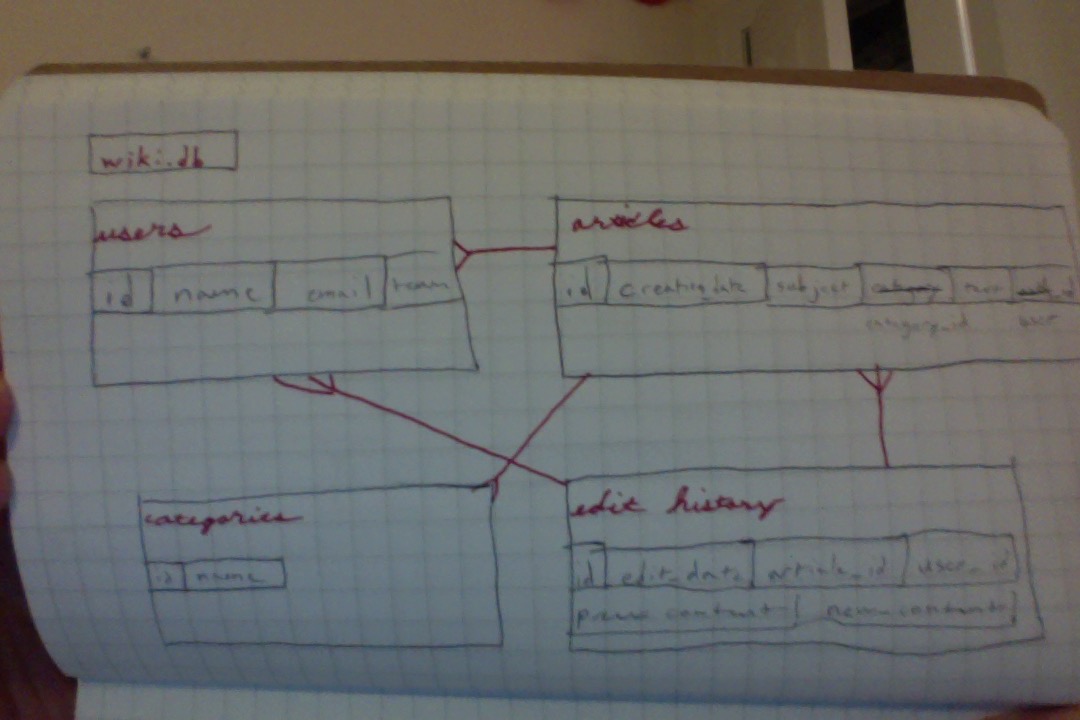 wiki.db
users
id name email team
articles
id creation_date subject category
category_id user
categories
id name
edit history
id edit_date article_id user_id
new_contents